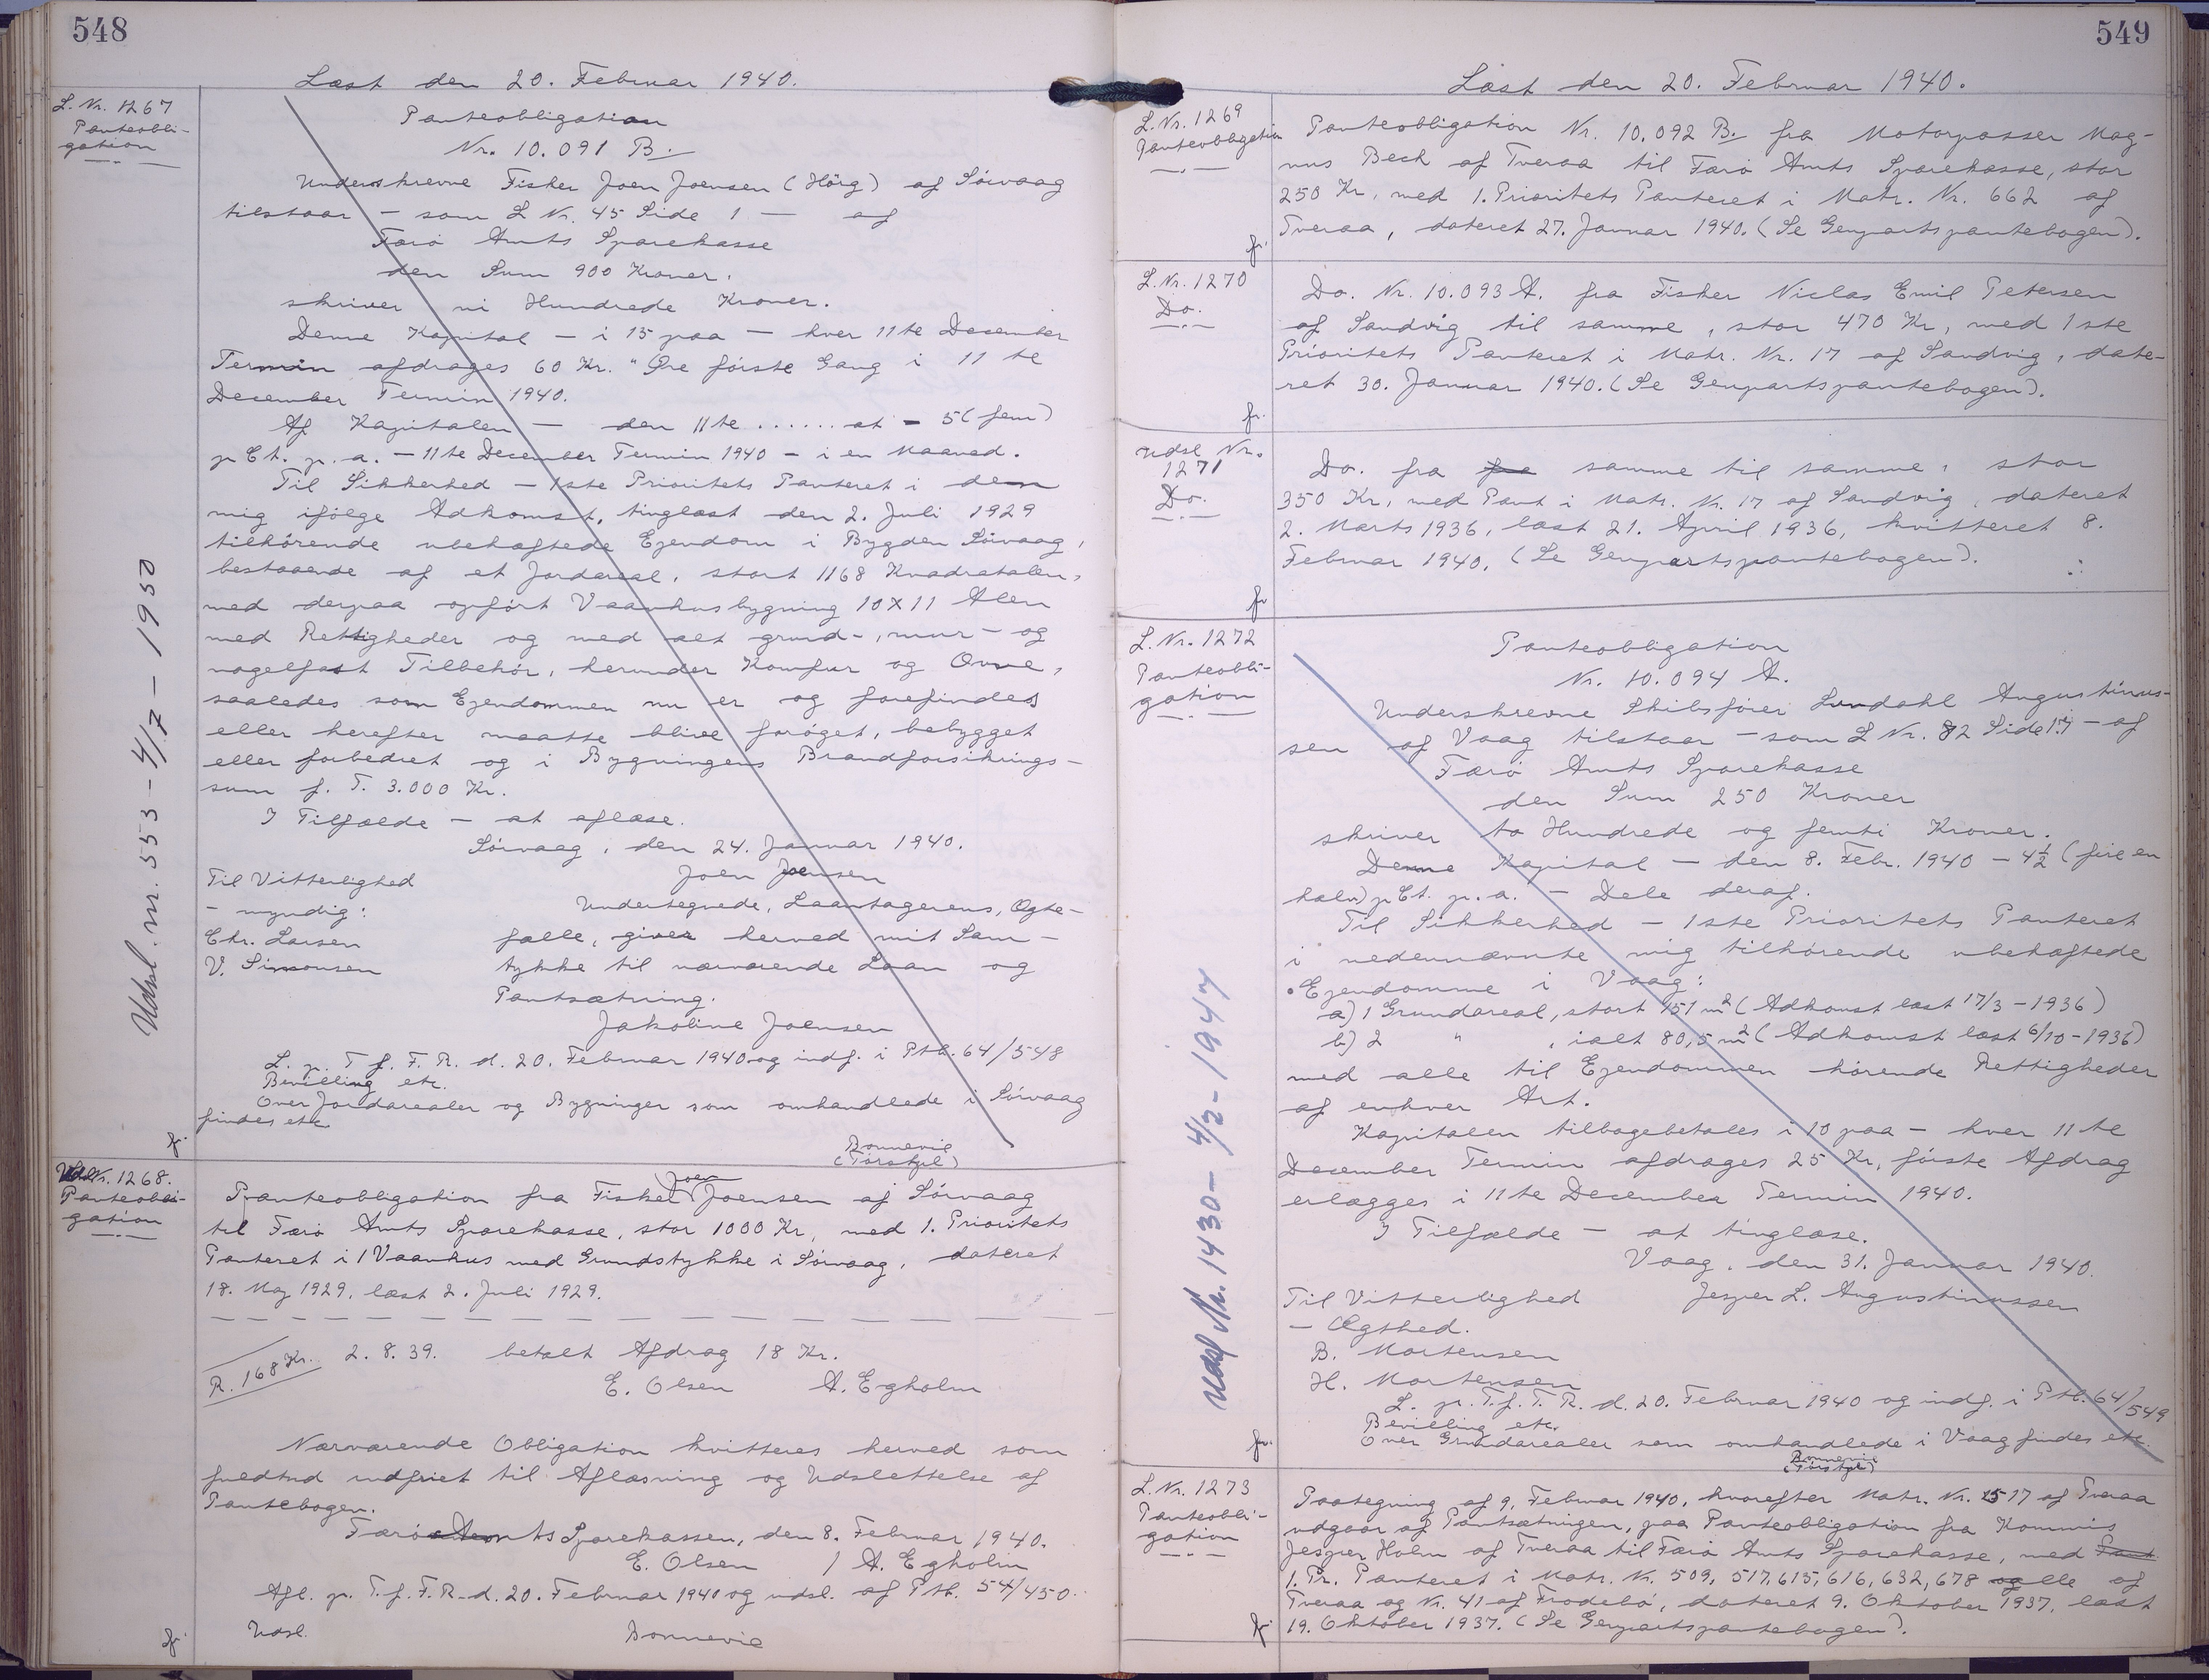 548
Læst den 20. Februar 1940.
L. Nr. 1267
Panteobli-
gation
Panteobligation
Nr. 10.091 B.
Underskrevne Fisker Joen Joensen (Hórg) af Sórvaag
tilstaar — som L Nr. 45 Side 1 — af
Færó Amts Sparekasse
den Sum 900 Kroner.
skriver ni Hundrede Kroner.
Denne Kapital — i 15 paa — hver 11te December
Termin afdrages 60 Kr. " Øre fórste Gang i 11te
December Termin 1940.
Af Kapitalen — den 11te ...... at — 5 (fem)
p Ct. p. a. — 11te December Termin 1940 — i en Maaned.
Til Sikkerhed — 1ste Prioritets Panteret i den
mig ifólge Adkomst, tinglæst den 2. Juli 1929
tilhórende ubehæftede Ejendom i Bygden Sórvaag,
bestaaende af et Jordareal, stort 1168 Kvadratalen,
med derpaa opfórt Vaanhusbygning 10 x 11 Alen
med Rettigheder og med alt grund-, mur- og
nagelfast Tilbehór, herunder Komfur og Ovne,
saaledes som Ejendommen nu er og forefindes
eller herefter maatte blive foróget, bebygget
eller forbedret og i Bygningens Brandforsikrings-
sum f. T. 3.000 Kr.
I Tilfælde — at aflæse.
Sórvaag, den 24. Januar 1940.
Til Vitterlighed
— myndig:
Chr. Larsen
V. Simonsen
Joen Joensen
Undertegnede, Laantagerens, Ægte-
fælle, giver herved mit Sam-
tykke til nærværende Laan og
Pantsætning.
Jakoline Joensen
L. p. T. f. F. R. d. 20. Februar 1940 og indf. i Ptb. 64/548
Bevilling etc.
Over Jordarealer og Bygninger som omhandlede i Sórvaag
findes etc
Bonnevie
(Tórstpl)
fr.
Udsl. nr. 553 - 4/7 - 1950
Udsl Nr. 1268.
Panteobli-
gation
Panteobligation fra Fisker Joen Joensen af Sórvaag
til Færó Amts Sparekasse, stor 1000 Kr, med 1. Prioritets
Panteret i 1 Vaanhus med Grundstykke i Sórvaag, dateret
18. Maj 1929, læst 2. Juli 1929.
R. 168 Kr.
2. 8. 39. betalt Afdrag 18 Kr.
E. Olsen A. Egholm
Nærværende Obligation kvitteres herved som
fuldtud indfriet til Aflæsning og Udslettelse af
Pantebogen.
Færó Amts Sparekassen, den 8. Februar 1940.
E. Olsen / A. Egholm
Afl. p. T. f. F. R. d. 20. Februar 1940 og udsl. af Ptb. 54/450.
Udsl. Bonnevie
fr.
549
Læst den 20. Februar 1940.
L. Nr. 1269
Panteobligation
Panteobligation Nr. 10.092 B. fra Motorpasser Mag-
nus Bech af Tveraa til Færó Amts Sparekasse, stor
250 Kr, med 1. Prioritets Panteret i Matr. Nr. 662 af
Tveraa, dateret 27. Januar 1940. (Se Genpartspantebogen).
fr.
L. Nr. 1270
Do.
Do. Nr. 10.093 A. fra Fisker Niclas Emil Petersen
af Sandvig til samme, stor 470 Kr, med 1ste
Prioritets Panteret i Matr. Nr. 17 af Sandvig, date-
ret 30. Januar 1940. (Se Genpartspantebogen).
fr.
Udsl Nr.
1271
Do.
Do. fra fra samme til samme, stor
350 Kr, med Pant i Matr. Nr. 17 af Sandvig, dateret
2. Marts 1936, læst 21. April 1936, kvitteret 8.
Februar 1940. (Se Genpartspantebogen).
fr
L. Nr. 1272
Panteobli-
gation
Panteobligation
Nr. 10.094 A.
Underskrevne Skibsfórer Lundahl Augustinus-
sen af Vaag tilstaar — som L Nr. 82 Side 14 — af
Færó Amts Sparekasse
den Sum 250 Kroner
skriver to Hundrede og femti Kroner.
Denne Kapital — den 8. Febr. 1940 — 4½ (fire en
halv) p Ct. p. a. — Dele deraf.
Til Sikkerhed — 1ste Prioritets Panteret
i nedennævnte mig tilhórende ubehæftede
Ejendomme i Vaag:
a) 1 Grundareal, stort 151 m² (Adkomst læst 17/3 - 1936)
b) 2 " , ialt 80,5 m² (Adkomst læst 6/10 - 1936)
med alle til Ejendommen hórende Rettigheder
af enhver Art.
Kapitalen tilbagebetales i 10 paa — hver 11te
December Termin afdrages 25 Kr, fórste Afdrag
erlægges i 11te December Termin 1940.
I Tilfælde — at tinglæse.
Vaag, den 31. Januar 1940.
Til Vitterlighed Jesper L. Augustinussen
— Ægthed.
B. Mortensen
H. Mortensen
L. p. T. f. F. R. d. 20. Februar 1940 og indf. i Ptb. 64/549
Bevilling etc.
Over Grundarealer som omhandlede i Vaag findes etc.
Bonnevie
(Tórstpl)
fr.
Udsl Nr. 1430 - 4/3 - 1947
L. Nr. 1273
Panteobli-
gation
Paategning af 9. Februar 1940, hvorefter Matr. Nr. 1517 af Tveraa
udgaar af Pantsætningen, paa Panteobligation fra Kommis
Jesper Holm af Tveraa til Færó Amts Sparekasse, med Pant
1. Pr. Panteret i Matr. Nr. 509, 517, 615, 616, 632, 678 alle af
Tveraa og Nr. 41 af Frodebó, dateret 9. Oktober 1937, læst
19. Oktober 1937. (Se Genpartspantebogen).
fr.